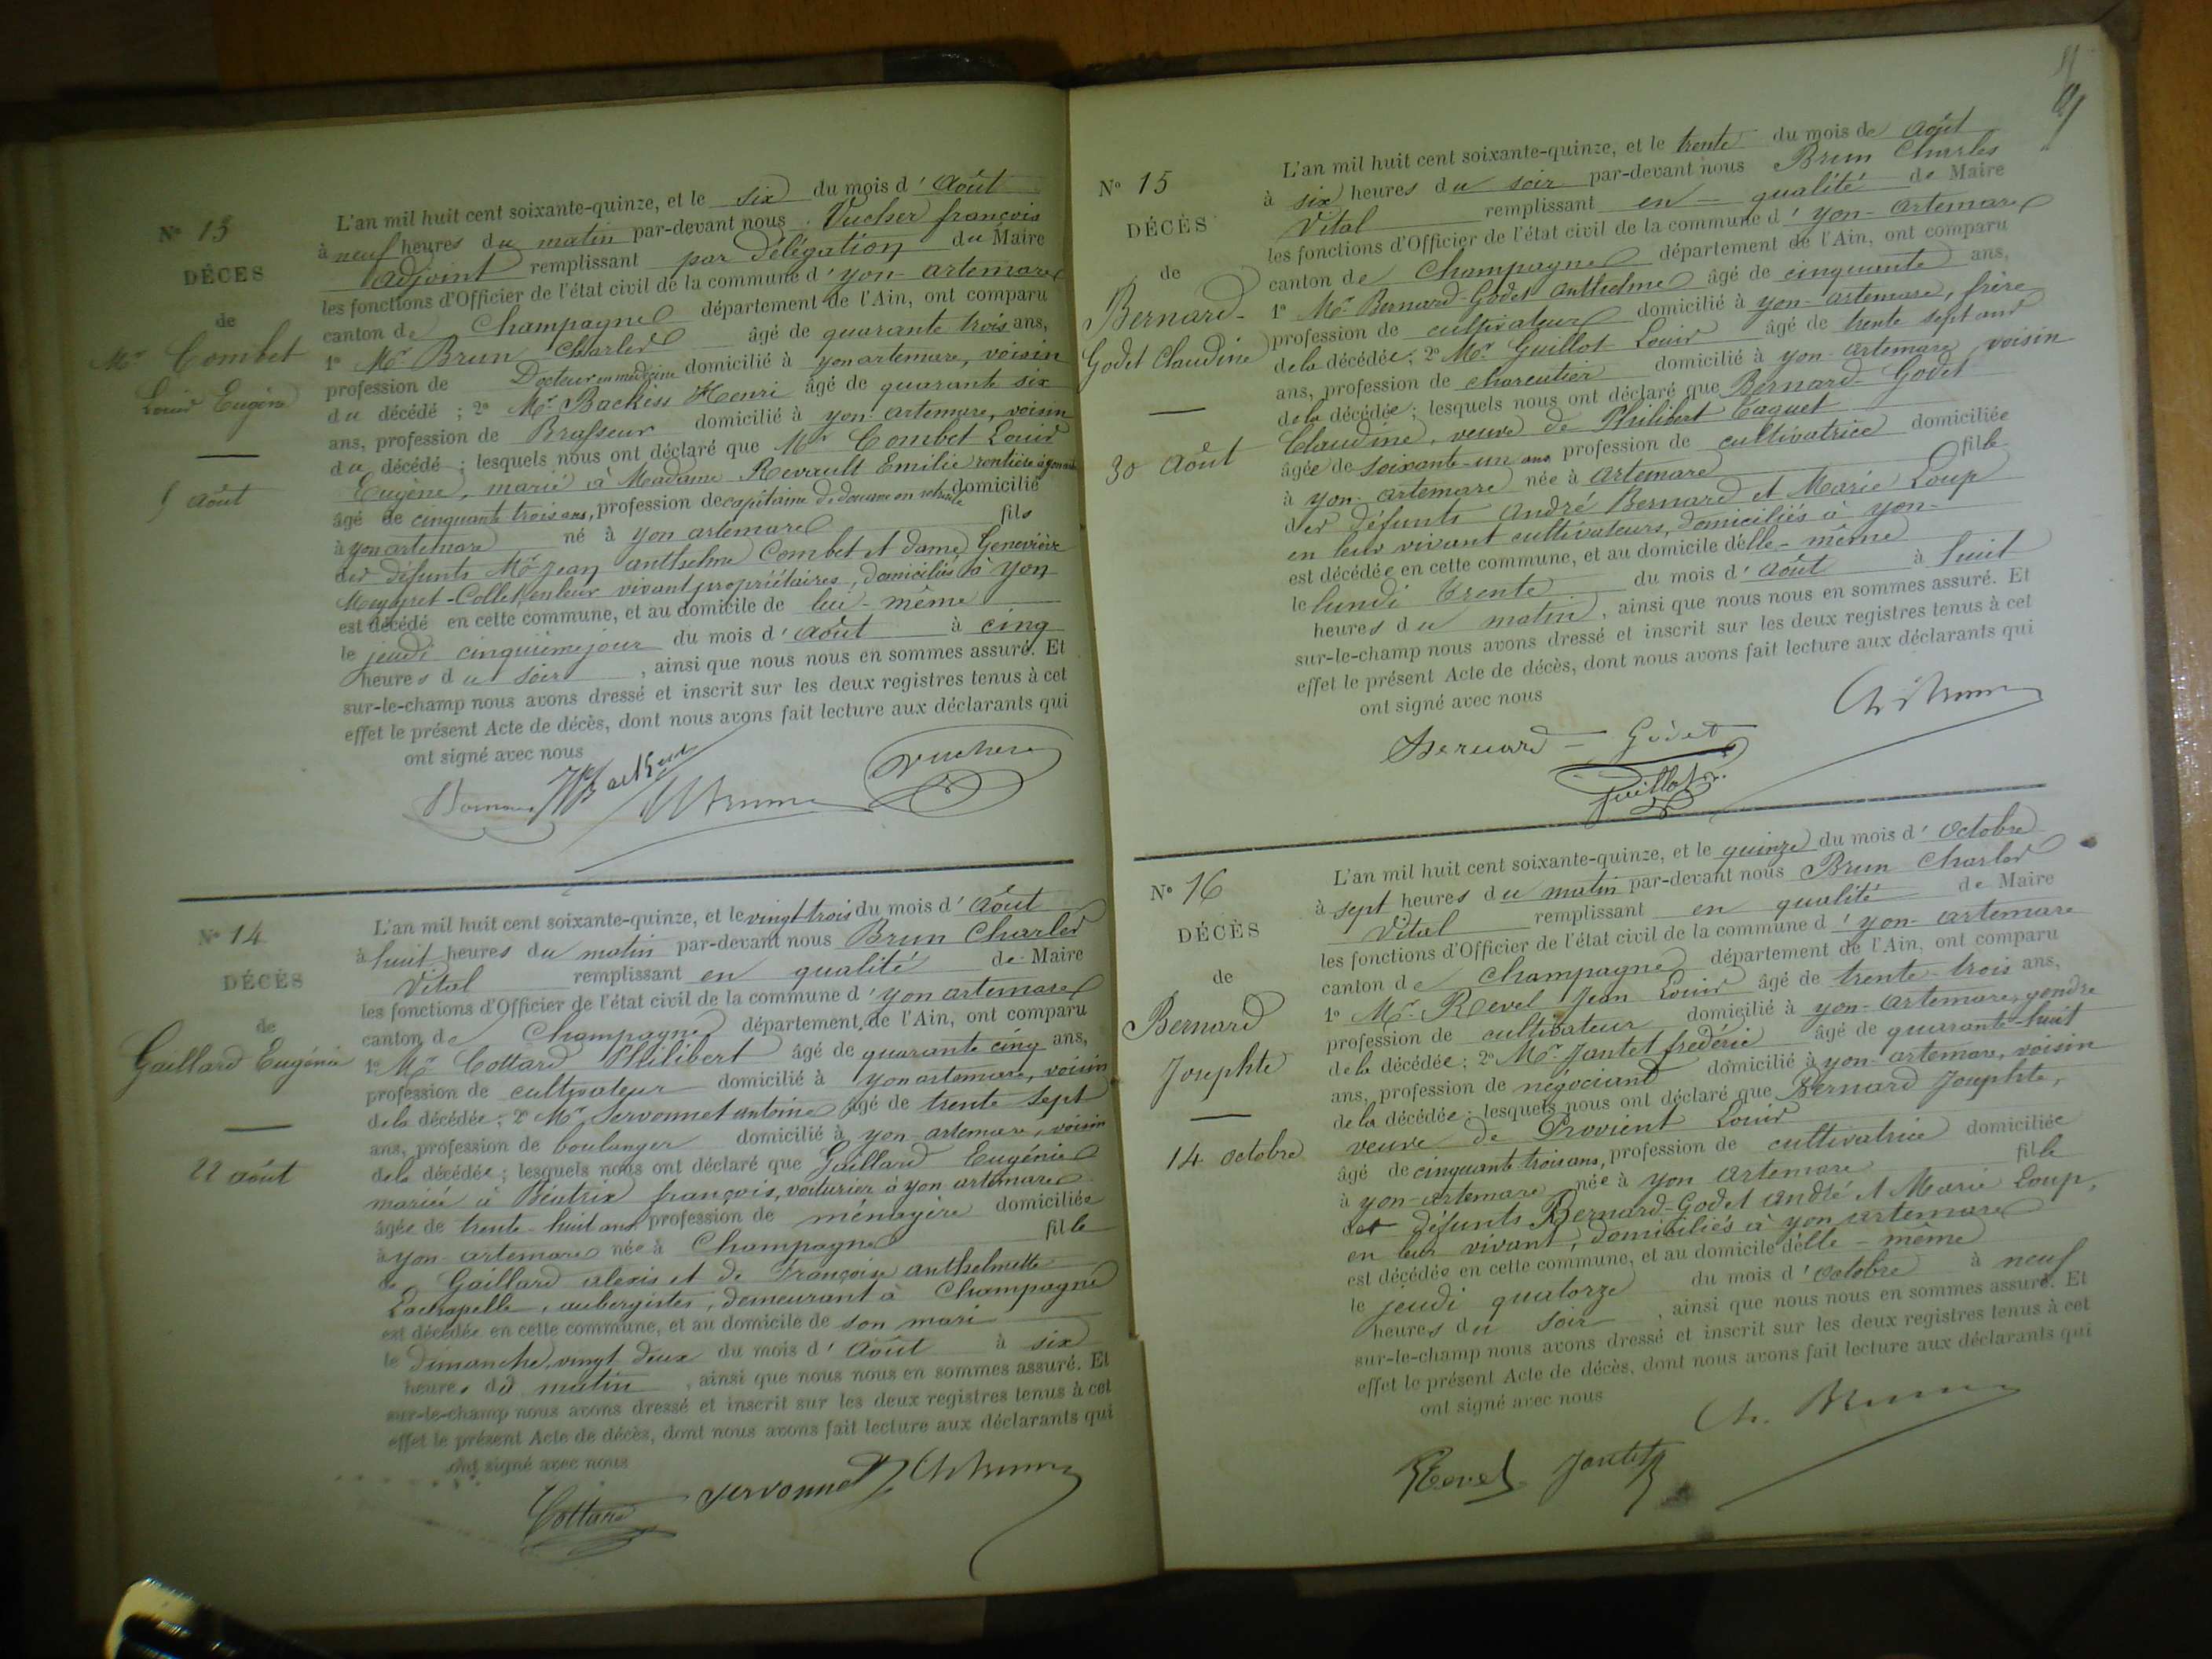 No 13
DÉCES
de
Mr Combet
Louis Eugène
5 Août
L'an mil huit cent soixante-quinze, et le six du mois d'Août
à neuf heures du matin par-devant nous Vucher françois
adjoint remplissant par Délégation du Maire
les fonctions d'Officier de l'état civil de la commune d'yon-artemare
canton de Champagne département de l'Ain, ont comparu
1o Mr Brun Charles âgé de quarante trois ans,
profession de Docteur en médecine domicilié à yon artemare, voisin
du décédé ; 2o Mr Backess Henri âgé de quarante six
ans, profession de Brasseur domicilié à yon-artemare, voisin
du décédé ; lesquels nous ont déclaré que Mr Combet Louis
Eugène, marié à Madame Revault Emilie rentière à
âgé de cinquante trois ans, profession de capitaine de douane en retraite domicilié
à yon artemare né à yon artemare fils
des défunts Mr Jean anthelme Combet et dame Geneviève
Meygret-Collet, en leur vivant propriétaires, domiciliés à yon
est décédé en cette commune, et au domicile de lui-même
le jeudi cinquième jour du mois d'Août à cinq
heures du soir, ainsi que nous nous en sommes assuré. Et
sur-le-champ nous avons dressé et inscrit sur les deux registres tenus à cet
effet le présent Acte de décès, dont nous avons fait lecture aux déclarants qui
ont signé avec nous
HBackess
Vucher
No 14
DÉCÈS
de
Gaillard Eugénie
22 août
L'an mil huit cent soixante-quinze, et le vingt trois du mois d'Août
à huit heures du matin par-devant nous Brun Charles
Vital remplissant en qualité de Maire
les fonctions d'Officier de l'état civil de la commune d'yon artemare
canton de Champagne département de l'Ain, ont comparu
1o Mr Cottard Philibert âgé de quarante cinq ans,
profession de cultivateur domicilié à yon artemare, voisin
de la décédée ; 2o Mr Servonnet antoine âgé de trente sept
ans, profession de boulanger domicilié à yon-artemare, voisin
de la décédée ; lesquels nous ont déclaré que Gaillard Eugénie
mariée à Béatrix françois, voiturier à yon artemare
âgée de trente-huit ans profession de ménagère domiciliée
à yon artemare née à Champagne fille
de Gaillard alexis et de Françoise anthelmette
Lachapelle, aubergistes, demeurant à Champagne
est décédée en cette commune, et au domicile de son mari
le Dimanche, vingt-deux du mois d'Août à six
heures du matin, ainsi que nous nous en sommes assuré. Et
sur-le-champ nous avons dressé et inscrit sur les deux registres tenus à cet
effet le présent Acte de décès, dont nous avons fait lecture aux déclarants qui
ont signé avec nous
Cottard Servonnet Ch Brun
No 15
DÉCÈS
de
Bernard-
Godet Claudine
30 Août
L'an mil huit cent soixante-quinze, et le trente du mois de Août
à six heures du soir par-devant nous Brun Charles
Vital remplissant en qualité de Maire
les fonctions d'Officier de l'état civil de la commune d'yon-artemare
canton de Champagne département de l'Ain, ont comparu
1o Mr Bernard-Godet anthelme âgé de cinquante ans,
profession de cultivateur domicilié à yon-artemare, frère
de la décédée ; 2o Mr Guillot Louis âgé de trente sept ans
ans, profession de charcutier domicilié à yon-artemare voisin
de la décédée ; lesquels nous ont déclaré que Bernard-Godet
Claudine, veuve de Philibert Caquet
âgée de soixante-un ans profession de cultivatrice domiciliée
à yon-artemare née à Artemare fille
des défunts André Bernard et Marie Loup
en leur vivant cultivateurs, domiciliés à yon-
est décédée en cette commune, et au domicile d'elle-même
le lundi trente du mois d'Août à huit
heures du matin, ainsi que nous nous en sommes assuré. Et
sur-le-champ nous avons dressé et inscrit sur les deux registres tenus à cet
effet le présent Acte de décès, dont nous avons fait lecture aux déclarants qui
ont signé avec nous
Bernard-Godet Ch Brun
Guillot
No 16
DÉCÈS
de
Bernard
Josephte
14 octobre
L'an mil huit cent soixante-quinze, et le quinze du mois d'Octobre
à sept heures du matin par-devant nous Brun Charles
Vital remplissant en qualité de Maire
les fonctions d'Officier de l'état civil de la commune d'yon-artemare
canton de Champagne département de l'Ain, ont comparu
1o Mr Revel Jean Louis âgé de trente-trois ans,
profession de cultivateur domicilié à yon-artemare, gendre
de la décédée ; 2o Mr Jantet frédéric âgé de quarante-huit
ans, profession de négociant domicilié à yon-artemare, voisin
de la décédée ; lesquels nous ont déclaré que Bernard Josephte,
veuve de Provient Louis
âgé de cinquante trois ans, profession de cultivatrice domiciliée
à yon-artemare née à yon artemare fille
des défunts Bernard-Godet andré et Marie Loup,
en leur vivant, domiciliés à yon artemare
est décédée en cette commune, et au domicile d'elle-même
le jeudi quatorze du mois d'Octobre à neuf
heures du soir, ainsi que nous nous en sommes assuré. Et
sur-le-champ nous avons dressé et inscrit sur les deux registres tenus à cet
effet le présent Acte de décès, dont nous avons fait lecture aux déclarants qui
ont signé avec nous
Revel Jantet Ch. Brun